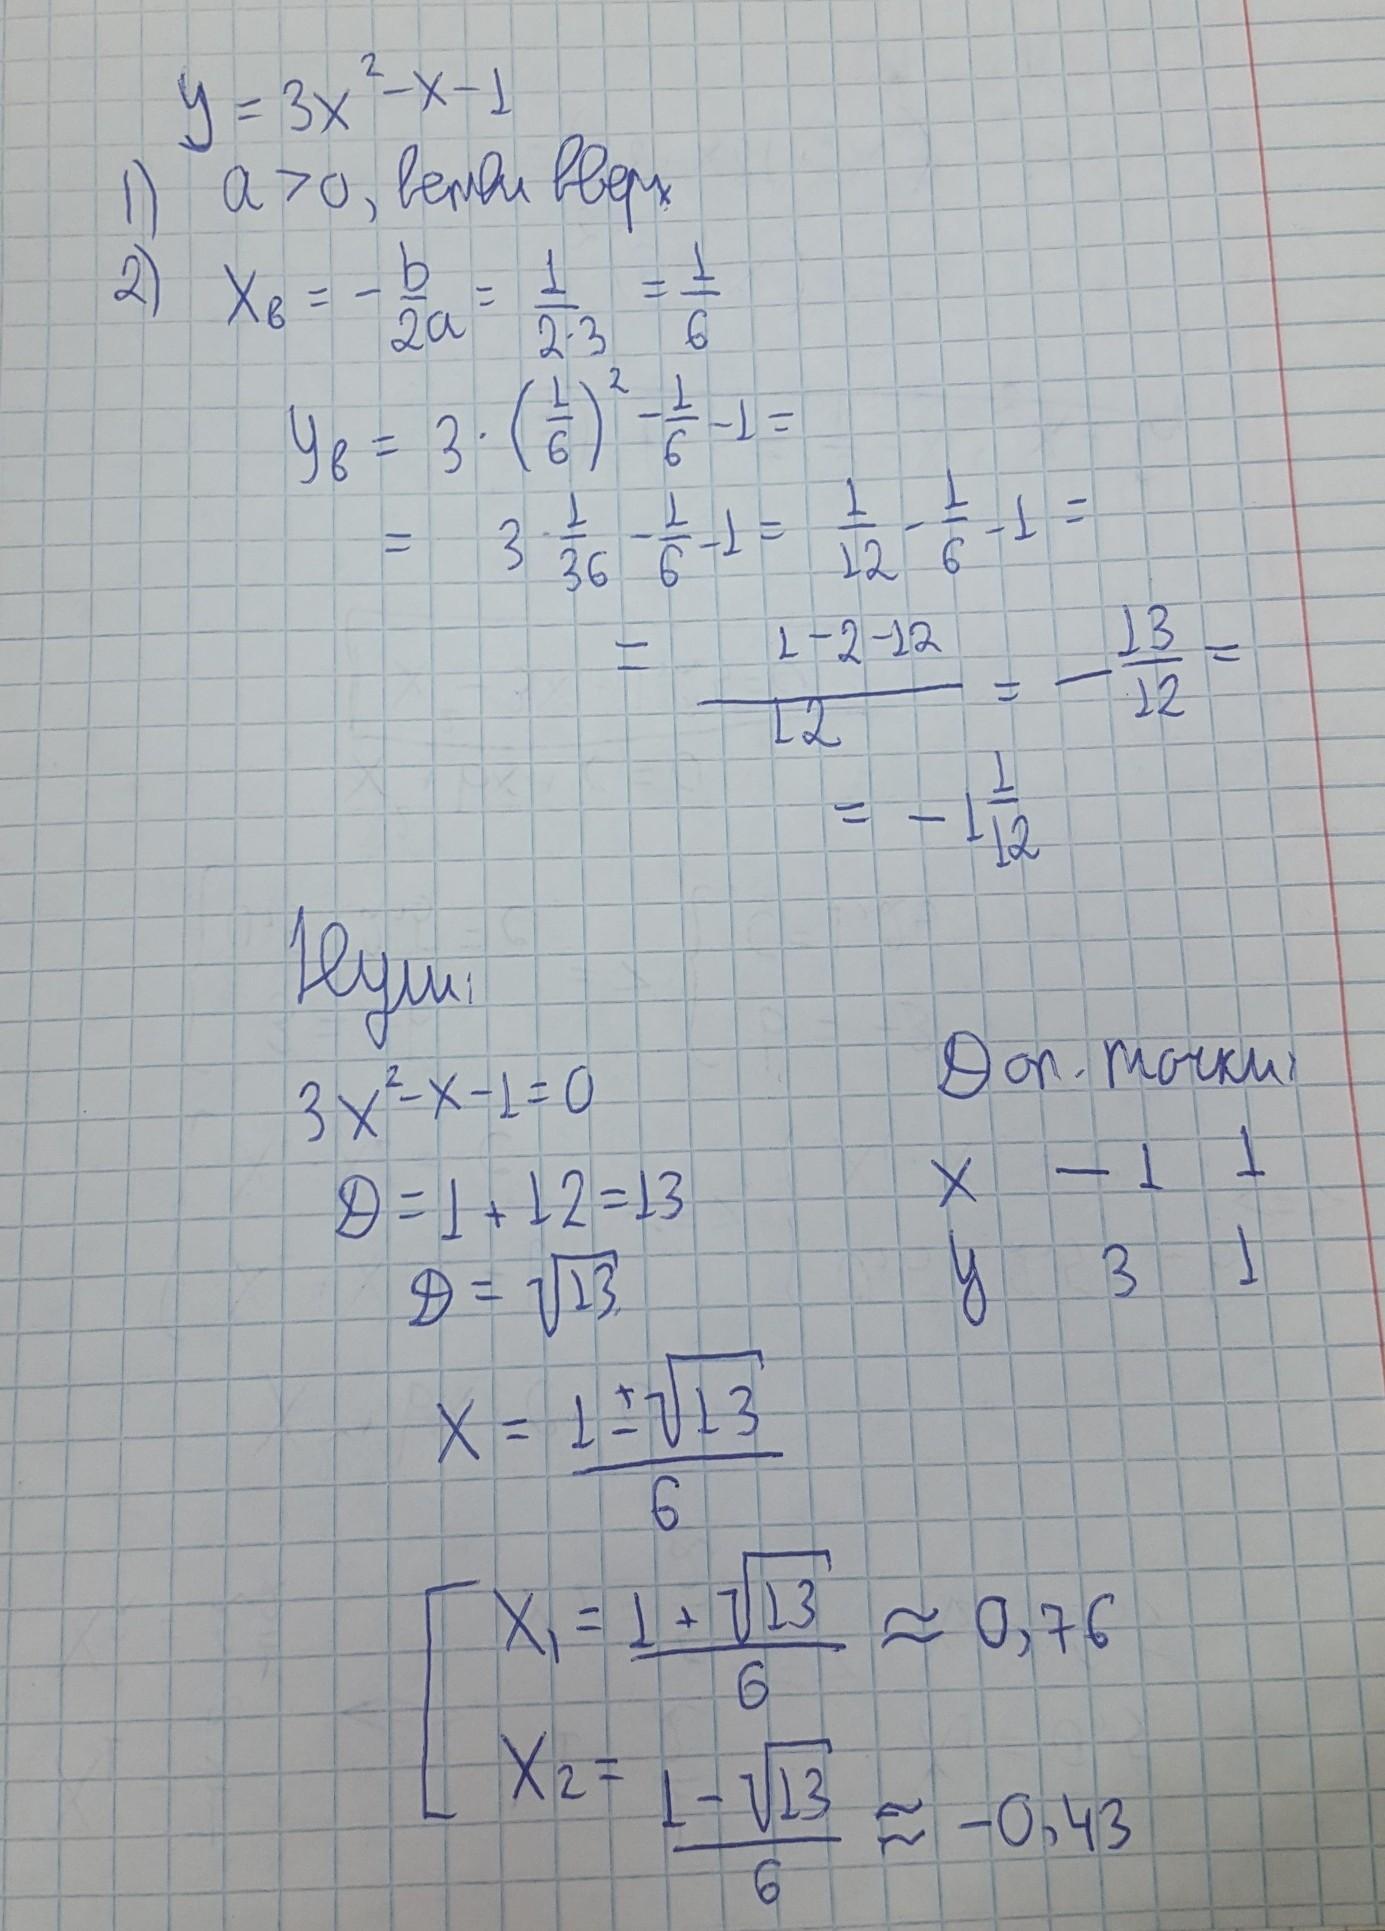 y = 3x² - x - 1
1) a > 0, ветви вверх
2) xв = - b/2a = 1/2·3 = 1/6
yв = 3 · (1/6)² - 1/6 - 1 =
= 3 · 1/36 - 1/6 - 1 = 1/12 - 1/6 - 1 =
= 1 - 2 - 12/12 = - 13/12 =
= - 1 1/12
Нули:
3x² - x - 1 = 0
D = 1 + 12 = 13
D = √13
x = 1 ± √13/6
x₁ = 1 + √13/6 ≈ 0,76
x₂ = 1 - √13/6 ≈ -0,43
Доп. точки:
x -1 1
y 3 1